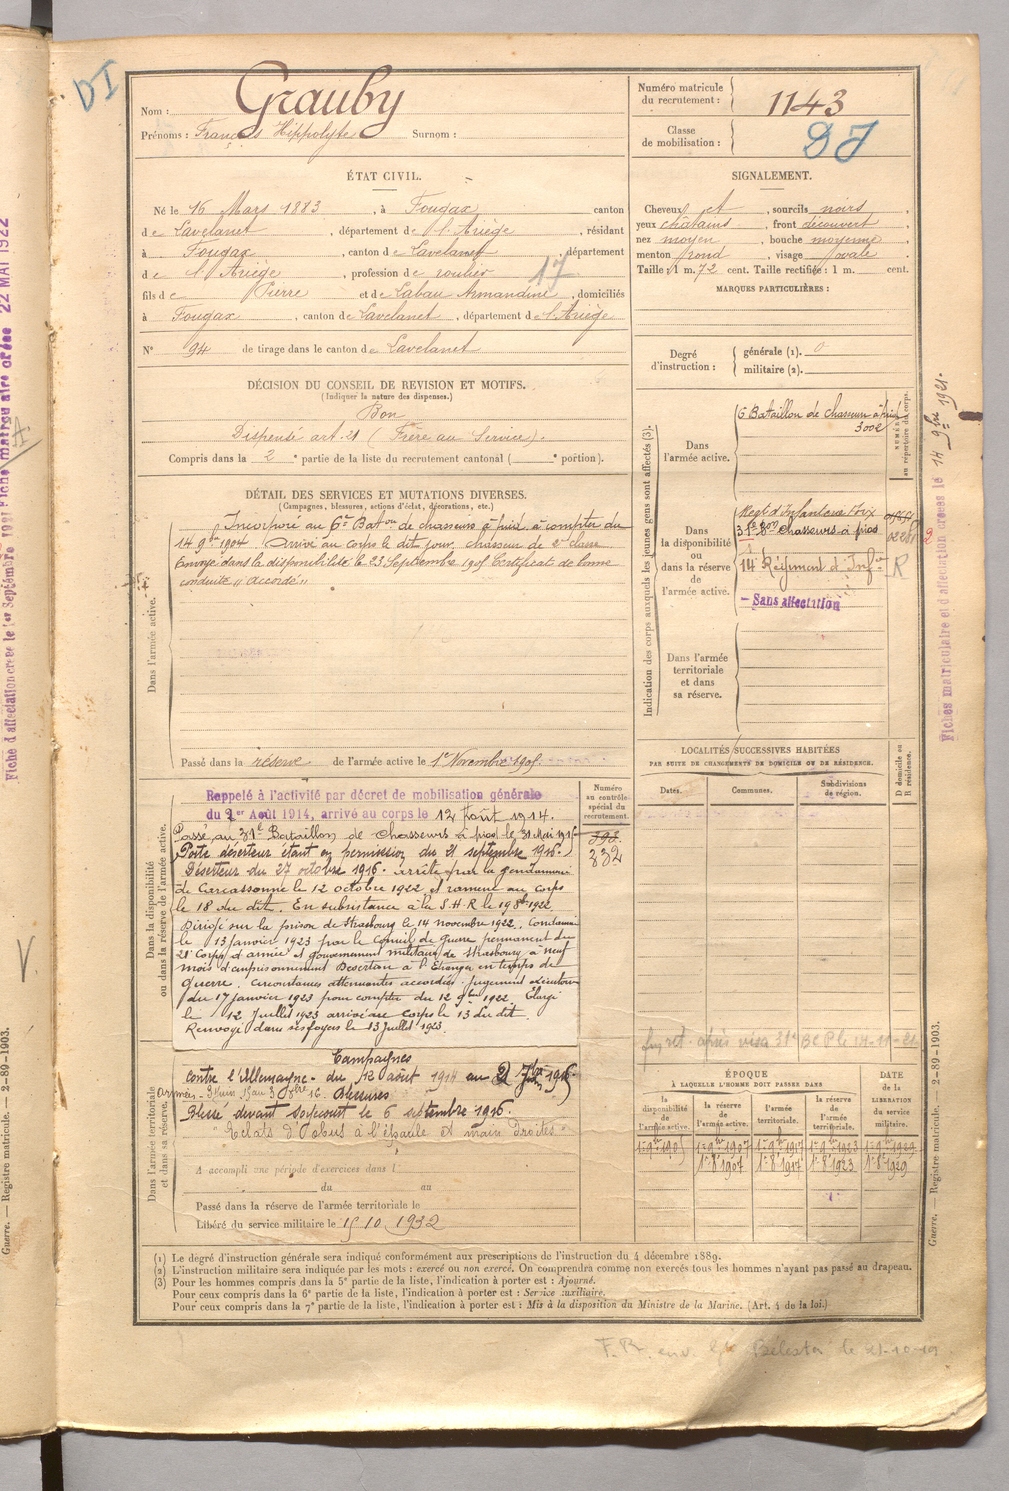 DI
Nom : Grauby
Prénoms : François Hippolyte Surnom :
Numéro matricule
du recrutement : 1143
Classe
de mobilisation :
ÉTAT CIVIL.
Né le 16 Mars 1883, à Fougax canton
de Lavelanet, département de l'Ariège, résidant
à Fougax, canton de Lavelanet, département
de l'Ariège, profession de roulier
17
fils de Pierre et de Cabau Armandine, domiciliés
à Fougax, canton de Lavelanet, département de l'Ariège
N° 94 de tirage dans le canton de Lavelanet
SIGNALEMENT.
Cheveux et, sourcils noirs,
yeux châtains, front découvert
nez moyen, bouche moyenne
menton rond, visage ovale
Taille : 1 m. 72 cent. Taille rectifiée : 1 m. cent.
MARQUES PARTICULIÈRES :
Degré
d'instruction :
générale (1). 0
militaire (2).
DÉCISION DU CONSEIL DE REVISION ET MOTIFS.
(Indiquer la nature des dispenses.)
Bon
Dispensé art. 21 (Frère au Service).
Compris dans la 2e partie de la liste du recrutement cantonal ( e portion).
DÉTAIL DES SERVICES ET MUTATIONS DIVERSES.
(Campagnes, blessures, actions d'éclat, décorations, etc.)
Dans l'armée active.
Incorporé au 6e Baton de chasseurs à pied à compter du
14 9bre 1904. Arrivé au corps le dit jour, chasseur de 2e classe
Envoyé dans la disponibilité le 23 Septembre 1905 Certificat de bonne
conduite "accordé"
Passé dans la réserve de l'armée active le 1er Novembre 1905.
Indication des corps auxquels les jeunes gens sont affectés (3).
NUMÉRO
au répertoire du corps.
Dans
l'armée active.
6 Bataillon de chasseurs à pied
3002
Dans
la disponibilité
ou
dans la réserve
de
l'armée active.
Regt d'Infanterie Foix
31e Bon Chasseurs à pied
14 Régiment d'Infie R
- Sans affectation
Dans l'armée
territoriale
et dans
sa réserve.
LOCALITÉS SUCCESSIVES HABITÉES
PAR SUITE DE CHANGEMENTS DE DOMICILE OU DE RÉSIDENCE.
Dates.
Communes.
Subdivisions
de région.
D domicile ou
R résidence.
Dans la disponibilité
ou dans la réserve de l'armée active.
Numéro
au contrôle
spécial du
recrutement.
332
Rappelé à l'activité par décret de mobilisation générale
du 1er Août 1914, arrivé au corps le 12 Août 1914.
Passé au 31e Bataillon de Chasseurs à pied le 31 Mai 1915
Porté déserteur étant en permission du 21 septembre 1916.
Déserteur du 27 octobre 1916. arrêté par la gendarmerie
de Carcassonne le 12 octobre 1922 et ramené au corps
le 18 du dit. En subsistance à la S.H.R le 19 8bre 1922.
Dirigé sur la prison de Strasbourg le 14 novembre 1922. Condamné
le 13 janvier 1923 par le Conseil de guerre permanent du
21e Corps d'armée et gouvernement militaire de Strasbourg à neuf
mois d'emprisonnement Désertion à l'Etranger en temps de
Guerre. Circonstances atténuantes accordées. Jugement exécutoire
du 17 janvier 1923 pour compter du 12 9bre 1922. Elargi
le 12 Juillet 1923 arrivé au Corps le 13 du dit.
Renvoyé dans ses foyers le 13 Juillet 1923.
Dans l'armée territoriale
et dans sa réserve.
Campagnes
Contre l'Allemagne - du 12 août 1914 au
Blessures
Blessé devant Soyecourt le 6 septembre 1916.
"Eclats d'obus à l'épaule et main droites"
A accompli une période d'exercices dans l
du au
Passé dans la réserve de l'armée territoriale le
Libéré du service militaire le 15 10 1932
ÉPOQUE
À LAQUELLE L'HOMME DOIT PASSER DANS
DATE
de la
LIBÉRATION DU
service
militaire.
la
disponibilité
de
l'armée active.
la réserve
de
l'armée active.
l'armée
territoriale.
la réserve
de
l'armée
territoriale.
1er 9bre 1905 1er 9bre 1907 1er 9bre 1917 1er 9bre 1923 1er 9bre 1929
1er 8 1907 1er 8 1917 1er 8 1923 1er 8 1929
(1) Le degré d'instruction générale sera indiqué conformément aux prescriptions de l'instruction du 4 décembre 1889.
(2) L'instruction militaire sera indiquée par les mots : exercé ou non exercé. On comprendra comme non exercés tous les hommes n'ayant pas passé au drapeau.
(3) Pour les hommes compris dans la 5e partie de la liste, l'indication à porter est : Ajourné.
Pour ceux compris dans la 6e partie de la liste, l'indication à porter est : Service auxiliaire.
Pour ceux compris dans la 7e partie de la liste, l'indication à porter est : Mis à la disposition du Ministre de la Marine. (Art. 4 de la loi.)
Fiches matriculaire et d'affectation créées le 14 9bre 1921.
Guerre. — Registre matricule. — 2-89-1903.
Guerre. — Registre matricule. — 2-89-1903.
22 MAI 1922